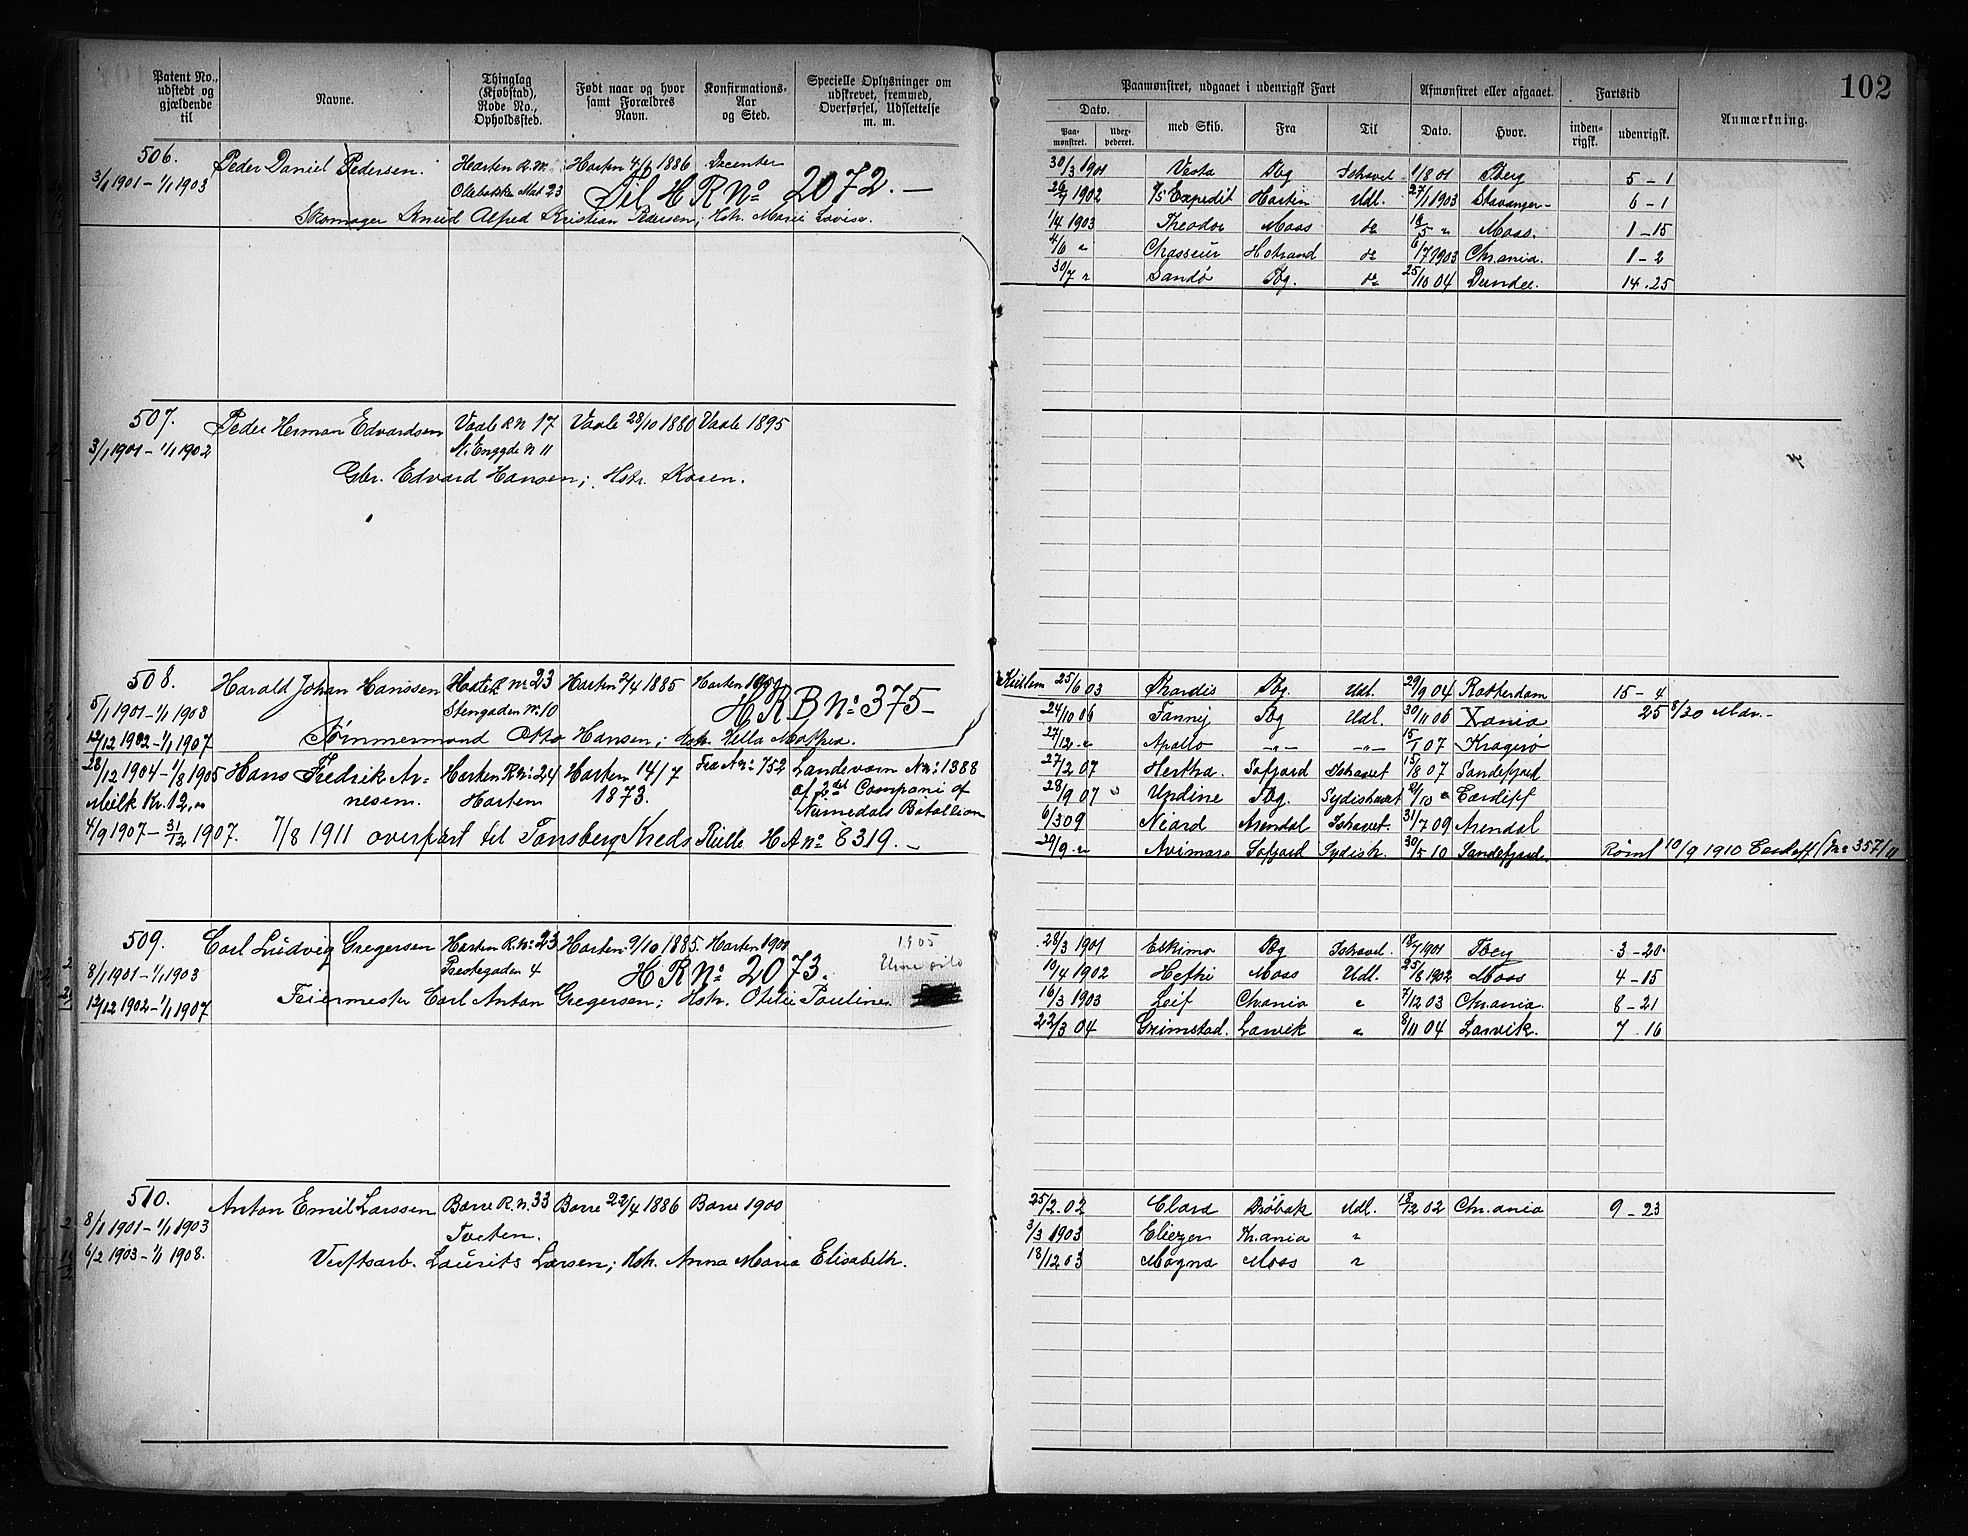 102
Patent No., udstedt og gjældende til
Navne.
Thinglag (Kjøbstad), Rode No., Opholdssted.
Født naar og hvor samt Forældres Navn.
Konfirmations-Aar og Sted.
Specielle Oplysninger om udskrevet, fremmed, Overførsel, Udslettelse m. m.
Paamønstret, udgaaet i udenrigsk Fart
Afmønstret eller afgaaet.
Fartstid
Anmærkning.
Dato.
Paa-mønstret.
med Skib.
Fra
Til
Dato.
Hvor.
inden-rigsk.
udenrigsk.
506. Peder Daniel Pedersen. Horten R. No Horten 4/6 1886
3/1 1901 – 1/1 1903 23 Til H R No 2072. –
Skomager Knud Alfred Kristian Pedersen; Hstr. Marie Lovise.
30/3 1901 Vesta Tbg Ishavet 1/8 01 Tberg 5 – 1
26/7 1902 S/S Expedit Horten Udl. 27/1 1903 Stavanger 6 – 1
1/4 1903 Theodor Moss do 16/5 " Moss. 1 – 15
4/6 " Chasseur Hstrand do 6/7 1903 Chr.ania. 1 – 2
30/7 " Sandö Tbg. do 25/10 04 Dundee. 14 . 25
507. Peder Herman Edvardsen Vaale R No 17 Vaale 28/10 1880 Vaale 1895
3/1 1901 – 1/1 1902 N 11
Gbr. Edvard Hansen; Hstr. Karen.
508. Harald Johan Hanssen Horten R No 23 Horten 2/4 1885 Horten 1900
5/1 1901 – 1/1 1903 Stengaden No 10 H R B No 375 –
12/12 1902 – 1/1 1907 Tömmermand Otto Hansen; Hstr. Mathea.
28/12 1904 – 1/8 1905 Hans Fredrik Arnesen. Horten R No 24 Horten 14/7 1873. Fra A No 752 Landeværn No 1388
Horten af 2den Compani af
Numedals Bataillon
4/9 1907 – 31/12 1907. 7/8 1911 overført til Tønsberg Kreds Rulle H A No 8319. –
25/6 03 Thordis Tbg. Udl. 29/9 04 Rotterdam 15 – 4
24/10 06 Fanny Tbg Udl. 30/11 06 Xania 25
27/12 " Apollo – " – – " – 15/1 07 Kragerö
27/2 07 Hertha. Sofjord Ishavet 15/8 07 Sandefjord
28/9 07 Undine Tbg. Sydishavet Cardiff
6/3 09 Niord Arendal Ishavet. 31/7 09 Arendal
29/9 " Avimore Sofjord Sydish. 30/5 10 Sandefjord. Rømt 10/9 1910 Cardiff (No 357/11
509. Carl Ludvig Gregersen Horten R. No 23 Horten 9/10 1885. Horten 1900 1905
8/1 1901 – 1/1 1903 Prestegaden 4 H R No 2073.
12/12 1902 – 1/1 1907 Feiermester Carl Anton Gregersen; Hstr. Otilie Pauline
28/3 1901 Eskimo Tbg Ishavet. 1901 Tberg 3 – 20.
10/4 1902 Hefhi Moss Udl. 25/8 1902 Moss 4 – 15
16/3 1903 Leif Chr.ania " 7/12 03 Chr.ania. 8 – 21
22/3 04 Grimstad. Larvik " 8/11 04 Larvik. 7 – 16
510. Anton Emil Larssen Borre R. N. 33 Borre 22/4 1886 Borre 1900
8/1 1901 – 1/1 1903 Toeten.
6/2 1903 – 1/1 1908. Verftsarb. Laurits Larsen; Hstr. Anna Maria Elisabeth.
25/2 02 Clara Dröbak Udl. 18/12 02 Chr.ania 9 – 23
3/3 1903 Eliezer Kr.ania "
18/12 03 Magna Moss "